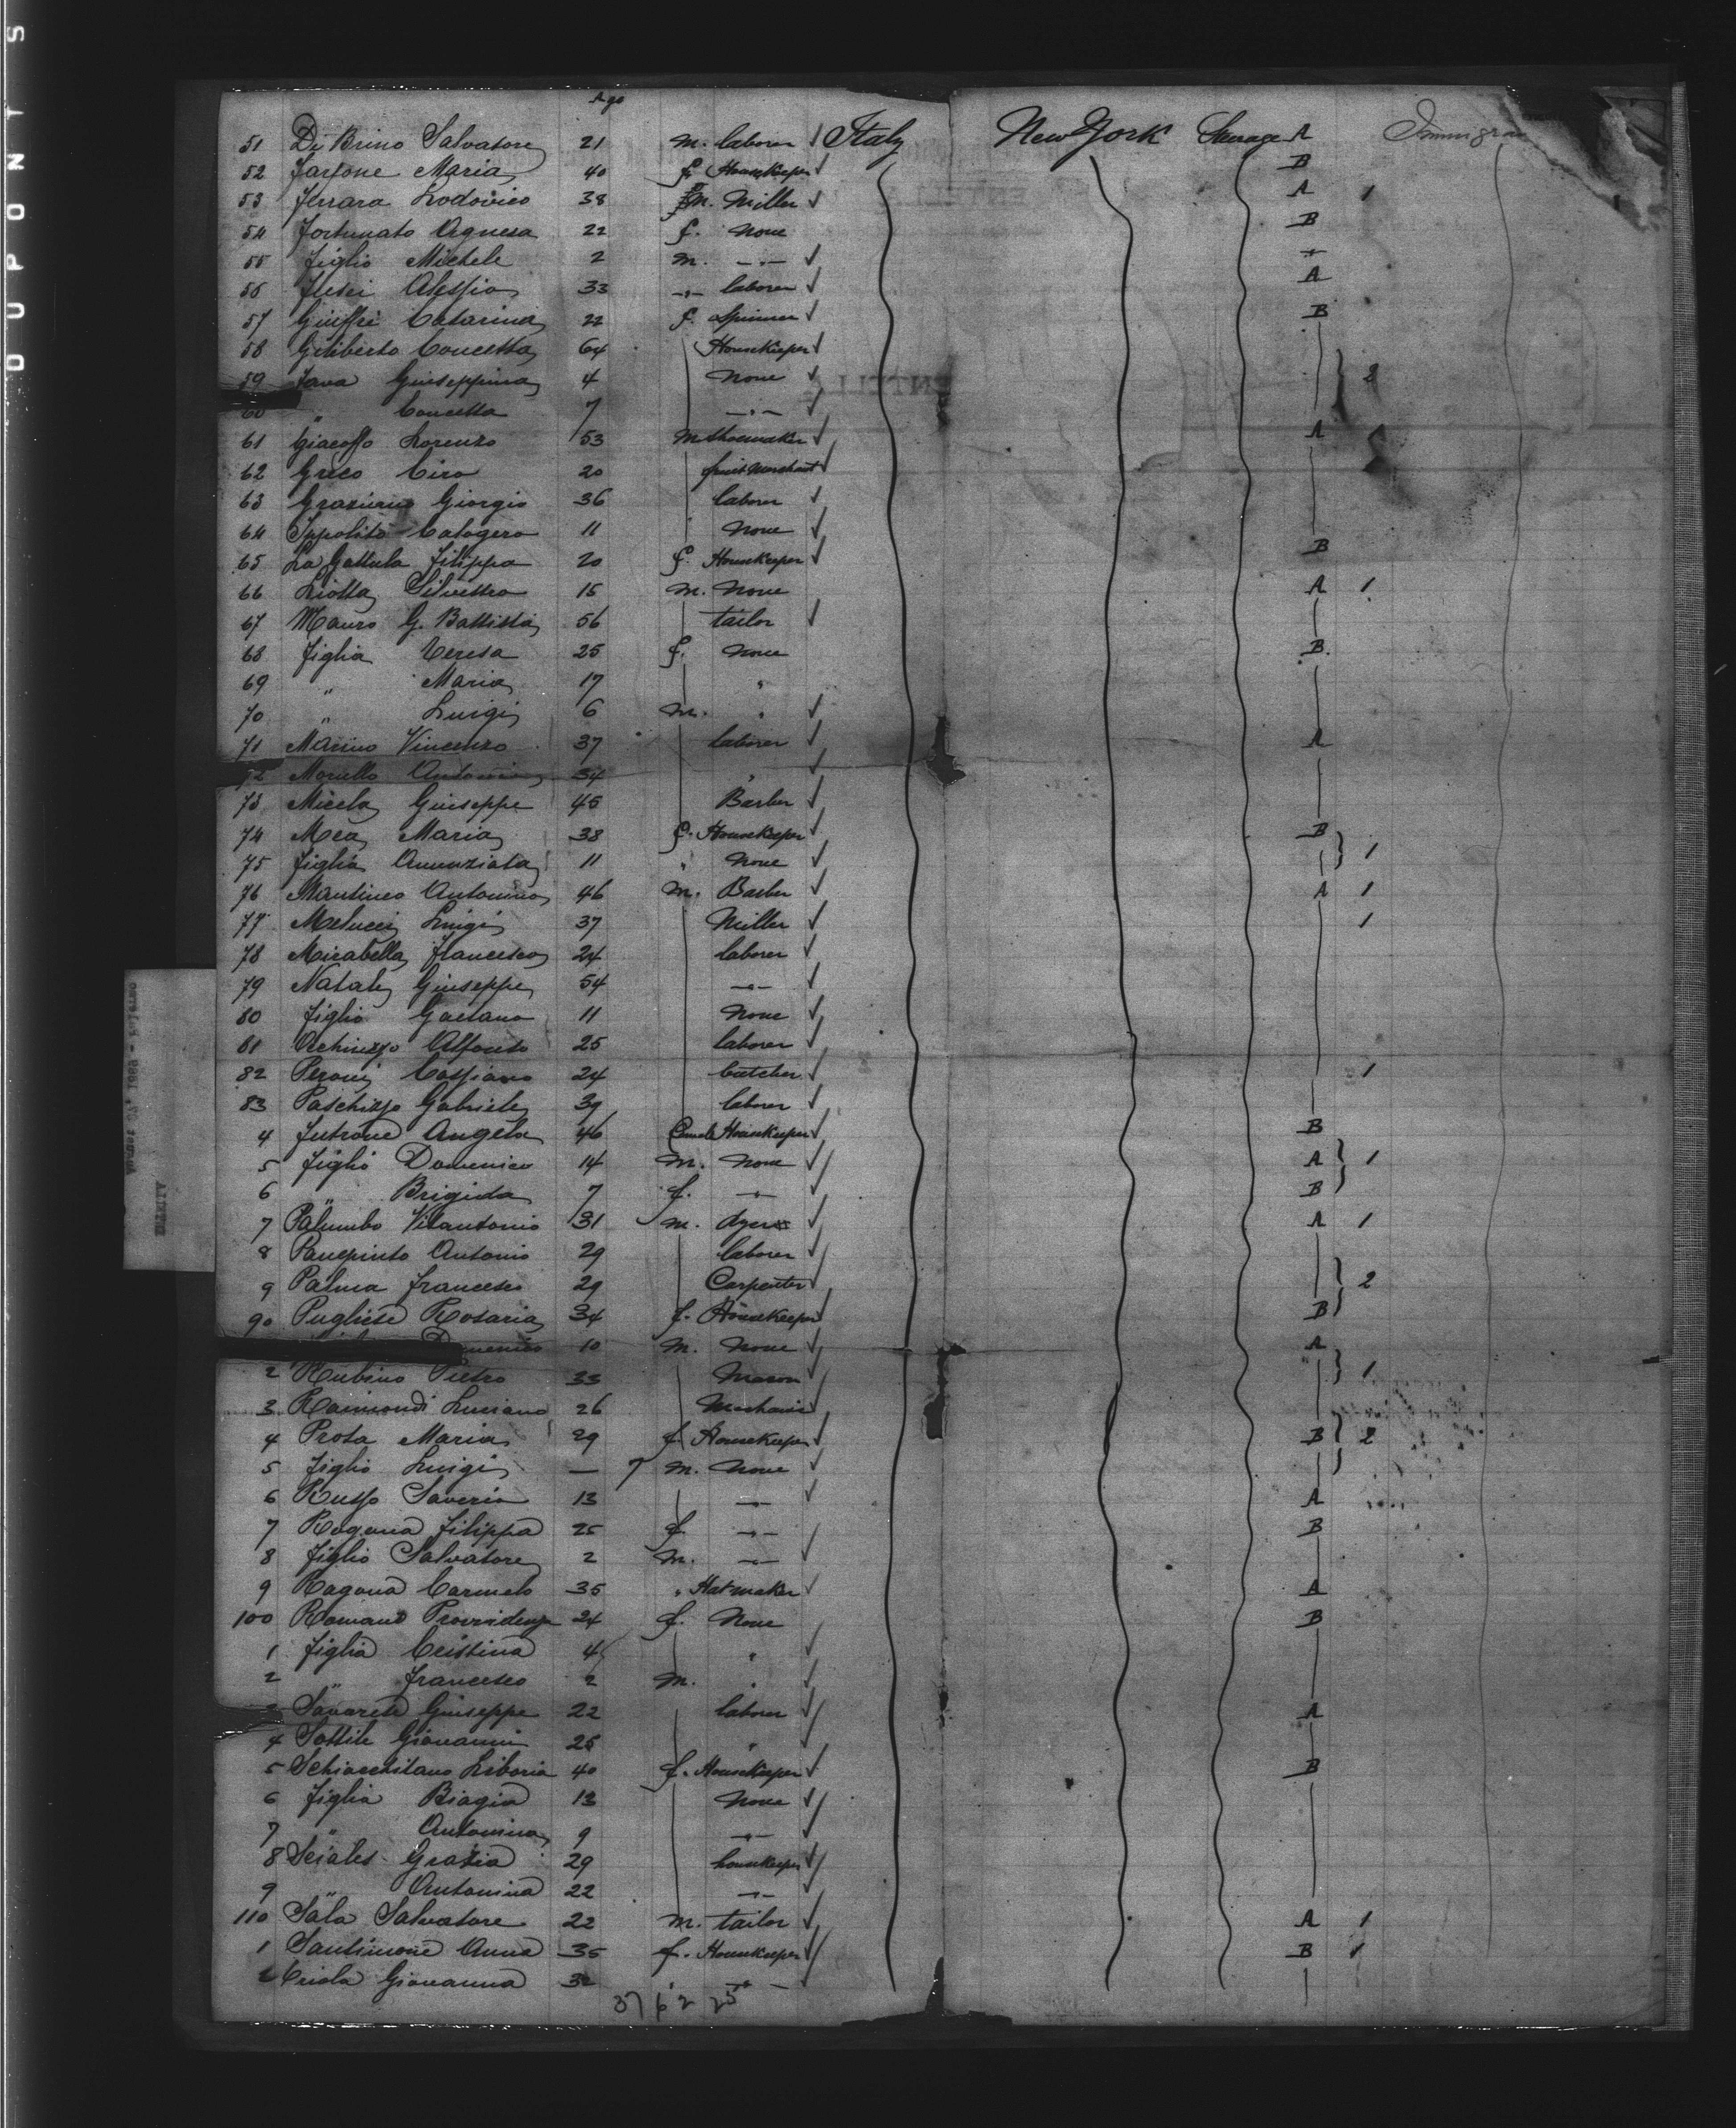 Age
51 Di Brino Salvatore 21 m. laborer ✓ Italy New York Steerage A Immigran
52 Farfone Maria 40 f. Housekeeper ✓ B
53 Ferrara Lodovico 38 m. Miller ✓ A 1
54 Fortunato Agnesa 22 f. None B
55 figlio Michele 2 m. -"- ✓
56 Alessio 33 -"- laborer ✓ A
57 Giuffré Catarina 22 f. Spinner ✓ B
58 Giliberto Concetta 64 Housekeeper ✓
59 Fava Giuseppina 4 None ✓ 2
60 " Concetta 7 -"- ✓
61 Giacoffo Lorenzo 53 m Shoemaker ✓ A
62 Greco Ciro 20 fruit merchant ✓
63 Graziano Giorgio 36 laborer ✓
64 Ippolito Calogero 11 None ✓
65 La Gattula Filippa 20 f. Housekeeper ✓ B
66 Liotta Silvestro 15 m. None A 1
67 Mauro G. Battista 56 tailor ✓
68 figlia Teresa 25 f. None B.
69 " Maria 17 "
70 " Luigi 6 m. " ✓
71 Marino Vincenzo 37 laborer ✓ A
72 Morello Antonino 34 " ✓
73 Micela Giuseppe 45 Barber ✓
74 Mea Maria 38 f. Housekeeper ✓ B
75 figlia Annunziata 11 " None ✓ 1
76 Mantineo Antonino 46 m. Barber ✓ A 1
77 Melucci Luigi 37 Miller ✓ 1
78 Mirabella Francesco 24 laborer ✓
79 Natale Giuseppe 54 -"- ✓
80 figlio Gaetano 11 None ✓
81 Alfonso 25 laborer ✓
82 Peroni Cassiano 24 butcher ✓ 1
83 Gabriele 39 laborer ✓
4 Futrone Angela 46 Housekeeper ✓ B
5 figlio Domenico 14 m. None ✓ A 1
6 " Brigida 7 f. -"- ✓ B
7 Palumbo Vitantonio 31 m. dyer ✓ A 1
8 Panepinto Antonio 29 laborer ✓
9 Palma Francesco 29 Carpenter ✓ 2
90 Pugliese Rosaria 34 f. Housekeeper ✓ B
10 m. None ✓ A
2 Rubino Pietro 33 Mason ✓ 1
3 Raimondi Luciano 26 Mechanic ✓
4 Prota Maria 29 f. Housekeeper ✓ B 2
5 figlio Luigi — 7 m. None ✓
6 Russo Saverio 13 -"- ✓ A
7 Ragona Filippa 25 f. -"- ✓ B
8 figlio Salvatore 2 m. -"- ✓
9 Ragona Carmelo 35 " Hatmaker ✓ A
100 Romano Provvidenza 24 f. None B
1 figlia Cristina 4 " ✓
2 " Francesco 2 m. " ✓
3 Savarese Giuseppe 22 laborer ✓ A
4 Sottile Giovanni 25 " ✓
5 Schiacchitano Liboria 40 f. Housekeeper ✓ B
6 figlia Biagia 13 None ✓
7 " Antonina 9 -"- ✓
8 Scialés Grazia 29 housekeeper ✓
9 " Antonina 22 -"- ✓
110 Sala Salvatore 22 m. tailor ✓ A 1
1 Santimone Anna 35 f. Housekeeper ✓ B 1
2 Giovanna 32 " -"- ✓
37 6 2 25
DUPONT S